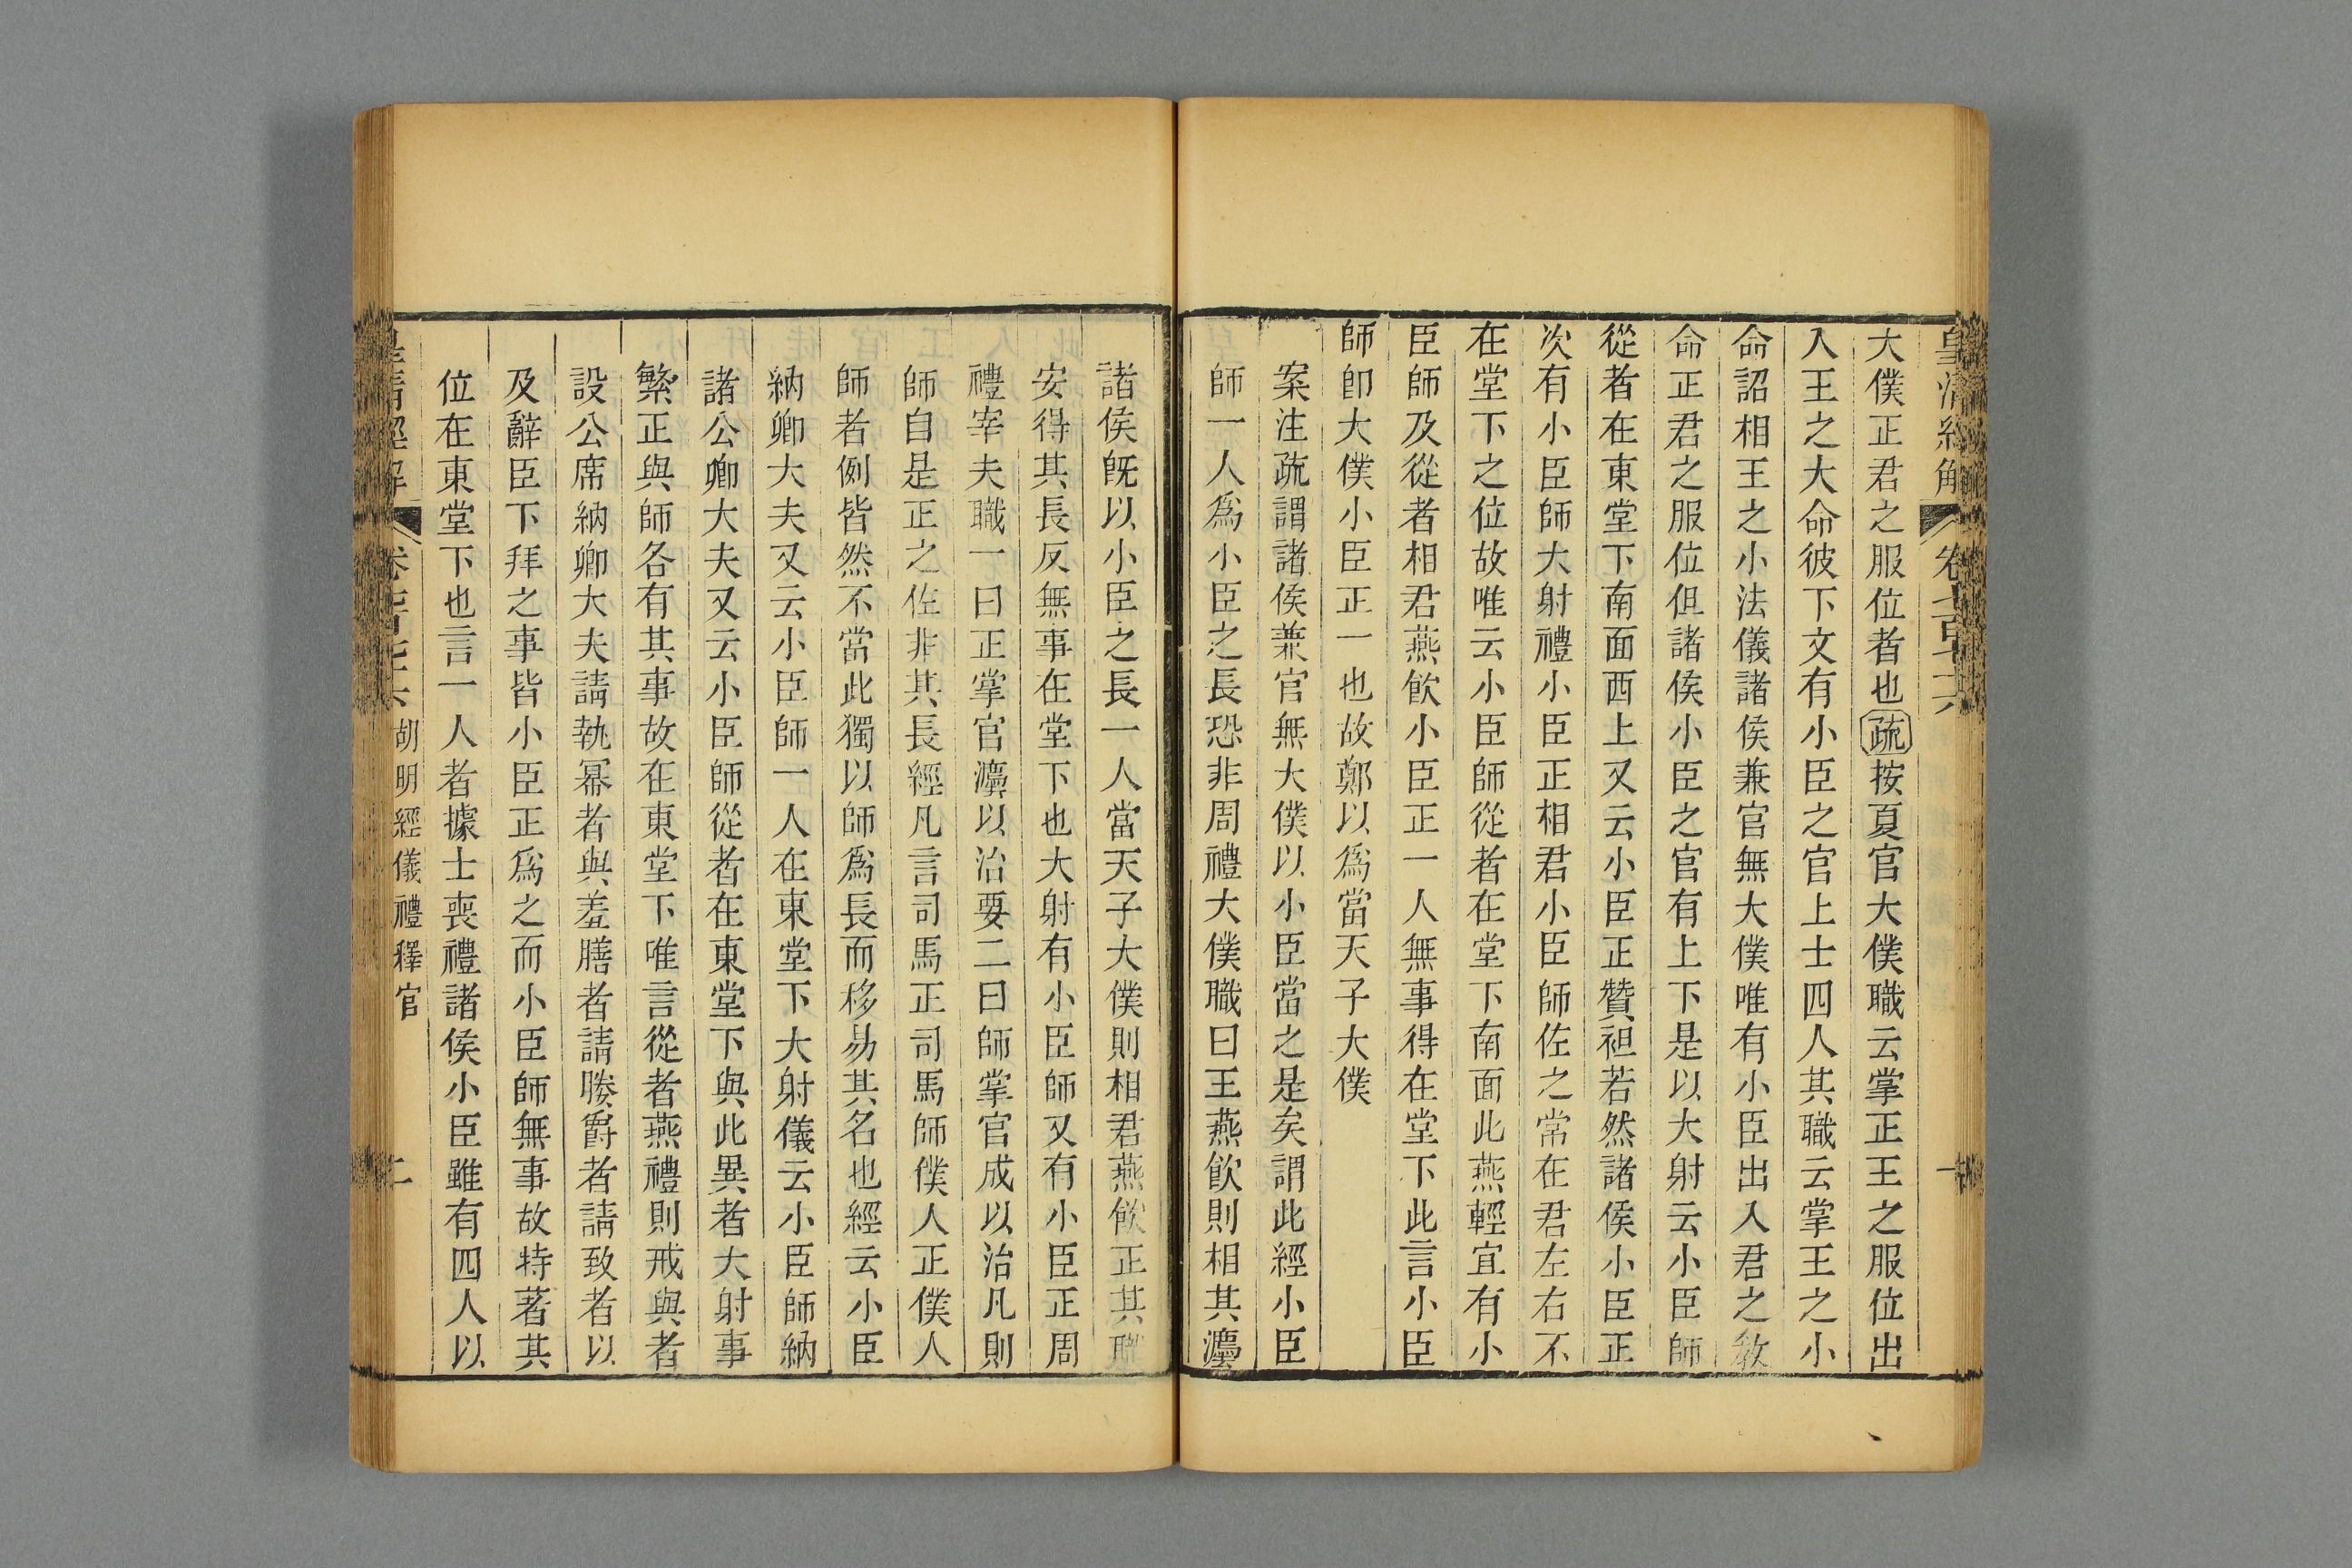 皇清經解 卷 一
大僕正君之服位者也疏按夏官大僕職云掌正王之服位出
入王之大命彼下文有小臣之官上士四人其職云掌王之小
命詔相王之小法儀諸侯兼官無大僕唯有小臣出入君之教
命正君之服位但諸侯小臣之官有上下是以大射云小臣師
從者在東堂下南面西上又云小臣正贊袒若然諸侯小臣正
次有小臣師大射禮小臣正相君小臣師佐之常在君左右不
在堂下之位故唯云小臣師從者在堂下南面此燕輕宜有小
臣師及從者相君燕飲小臣正一人無事得在堂下此言小臣
師卽大僕小臣正一也故鄭以爲當天子大僕
案注疏謂諸侯兼官無大僕以小臣當之是矣謂此經小臣
師一人爲小臣之長恐非周禮大僕職曰王燕飲則相其灋
諸侯旣以小臣之長一人當天子大僕則相君燕飲正其職
安得其長反無事在堂下也大射有小臣師又有小臣正周
禮宰夫職一曰正掌官灋以治要二曰師掌官成以治凡則
師自是正之佐非其長經凡言司馬正司馬師僕人正僕人
師者例皆然不當此獨以師爲長而移易其名也經云小臣
納卿大夫又云小臣師一人在東堂下大射儀云小臣師納
諸公卿大夫又云小臣師從者在東堂下與此異者大射事
繁正與師各有其事故在東堂下唯言從者燕禮則戒與者
設公席納卿大夫請執冪者與羞膳者請媵爵者請致者以
及辭臣下拜之事皆小臣正爲之而小臣師無事故特著其
位在東堂下也言一人者據士喪禮諸侯小臣雖有四人以
皇清經解 卷 胡明經儀禮釋官 二